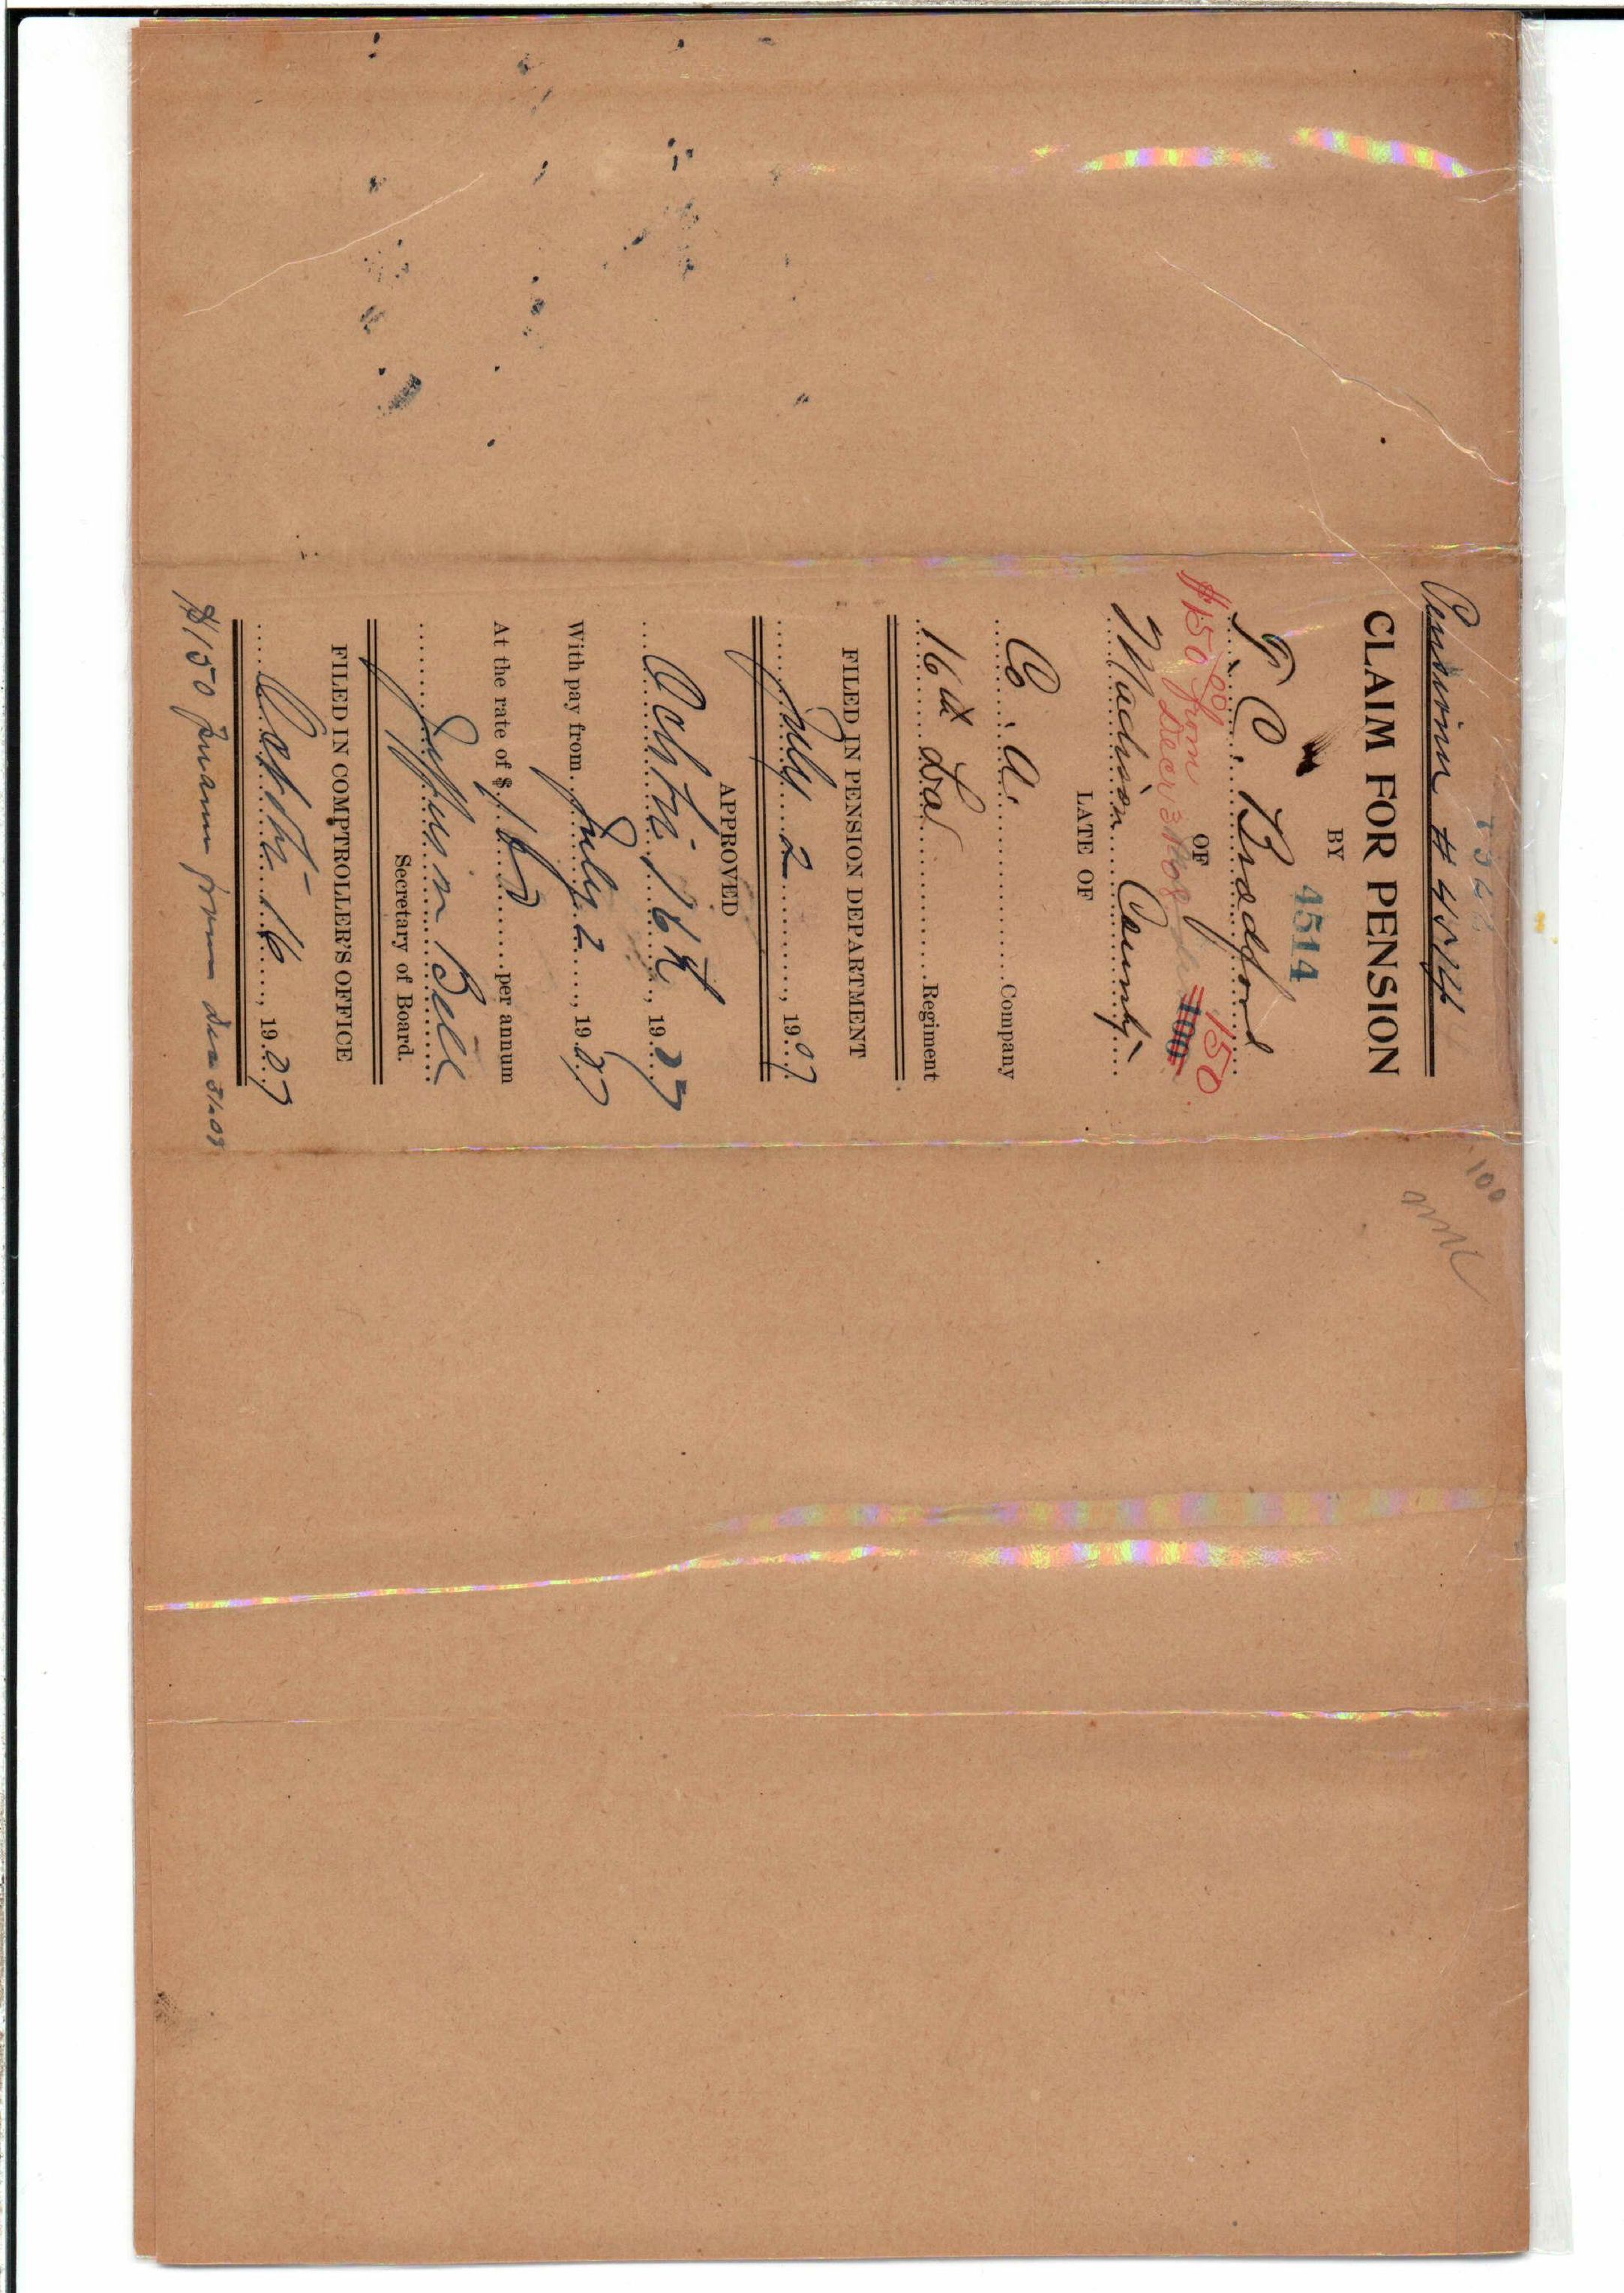 Pension # 4514
CLAIM FOR PENSION
BY
4514
C. Bradford
OF
150
$150.00 from
Decr 31 08
100
Madison County
LATE OF
Co. A. Company
16th La Regiment
FILED IN PENSION DEPARTMENT
July 2, 1907
APPROVED
Octbr 16th, 1907
With pay from July 2, 1907
At the rate of $ per annum
Jefferson Bell
Secretary of Board.
FILED IN COMPTROLLER'S OFFICE
Octbr 16, 1907
$150 from Dec 31.08
100